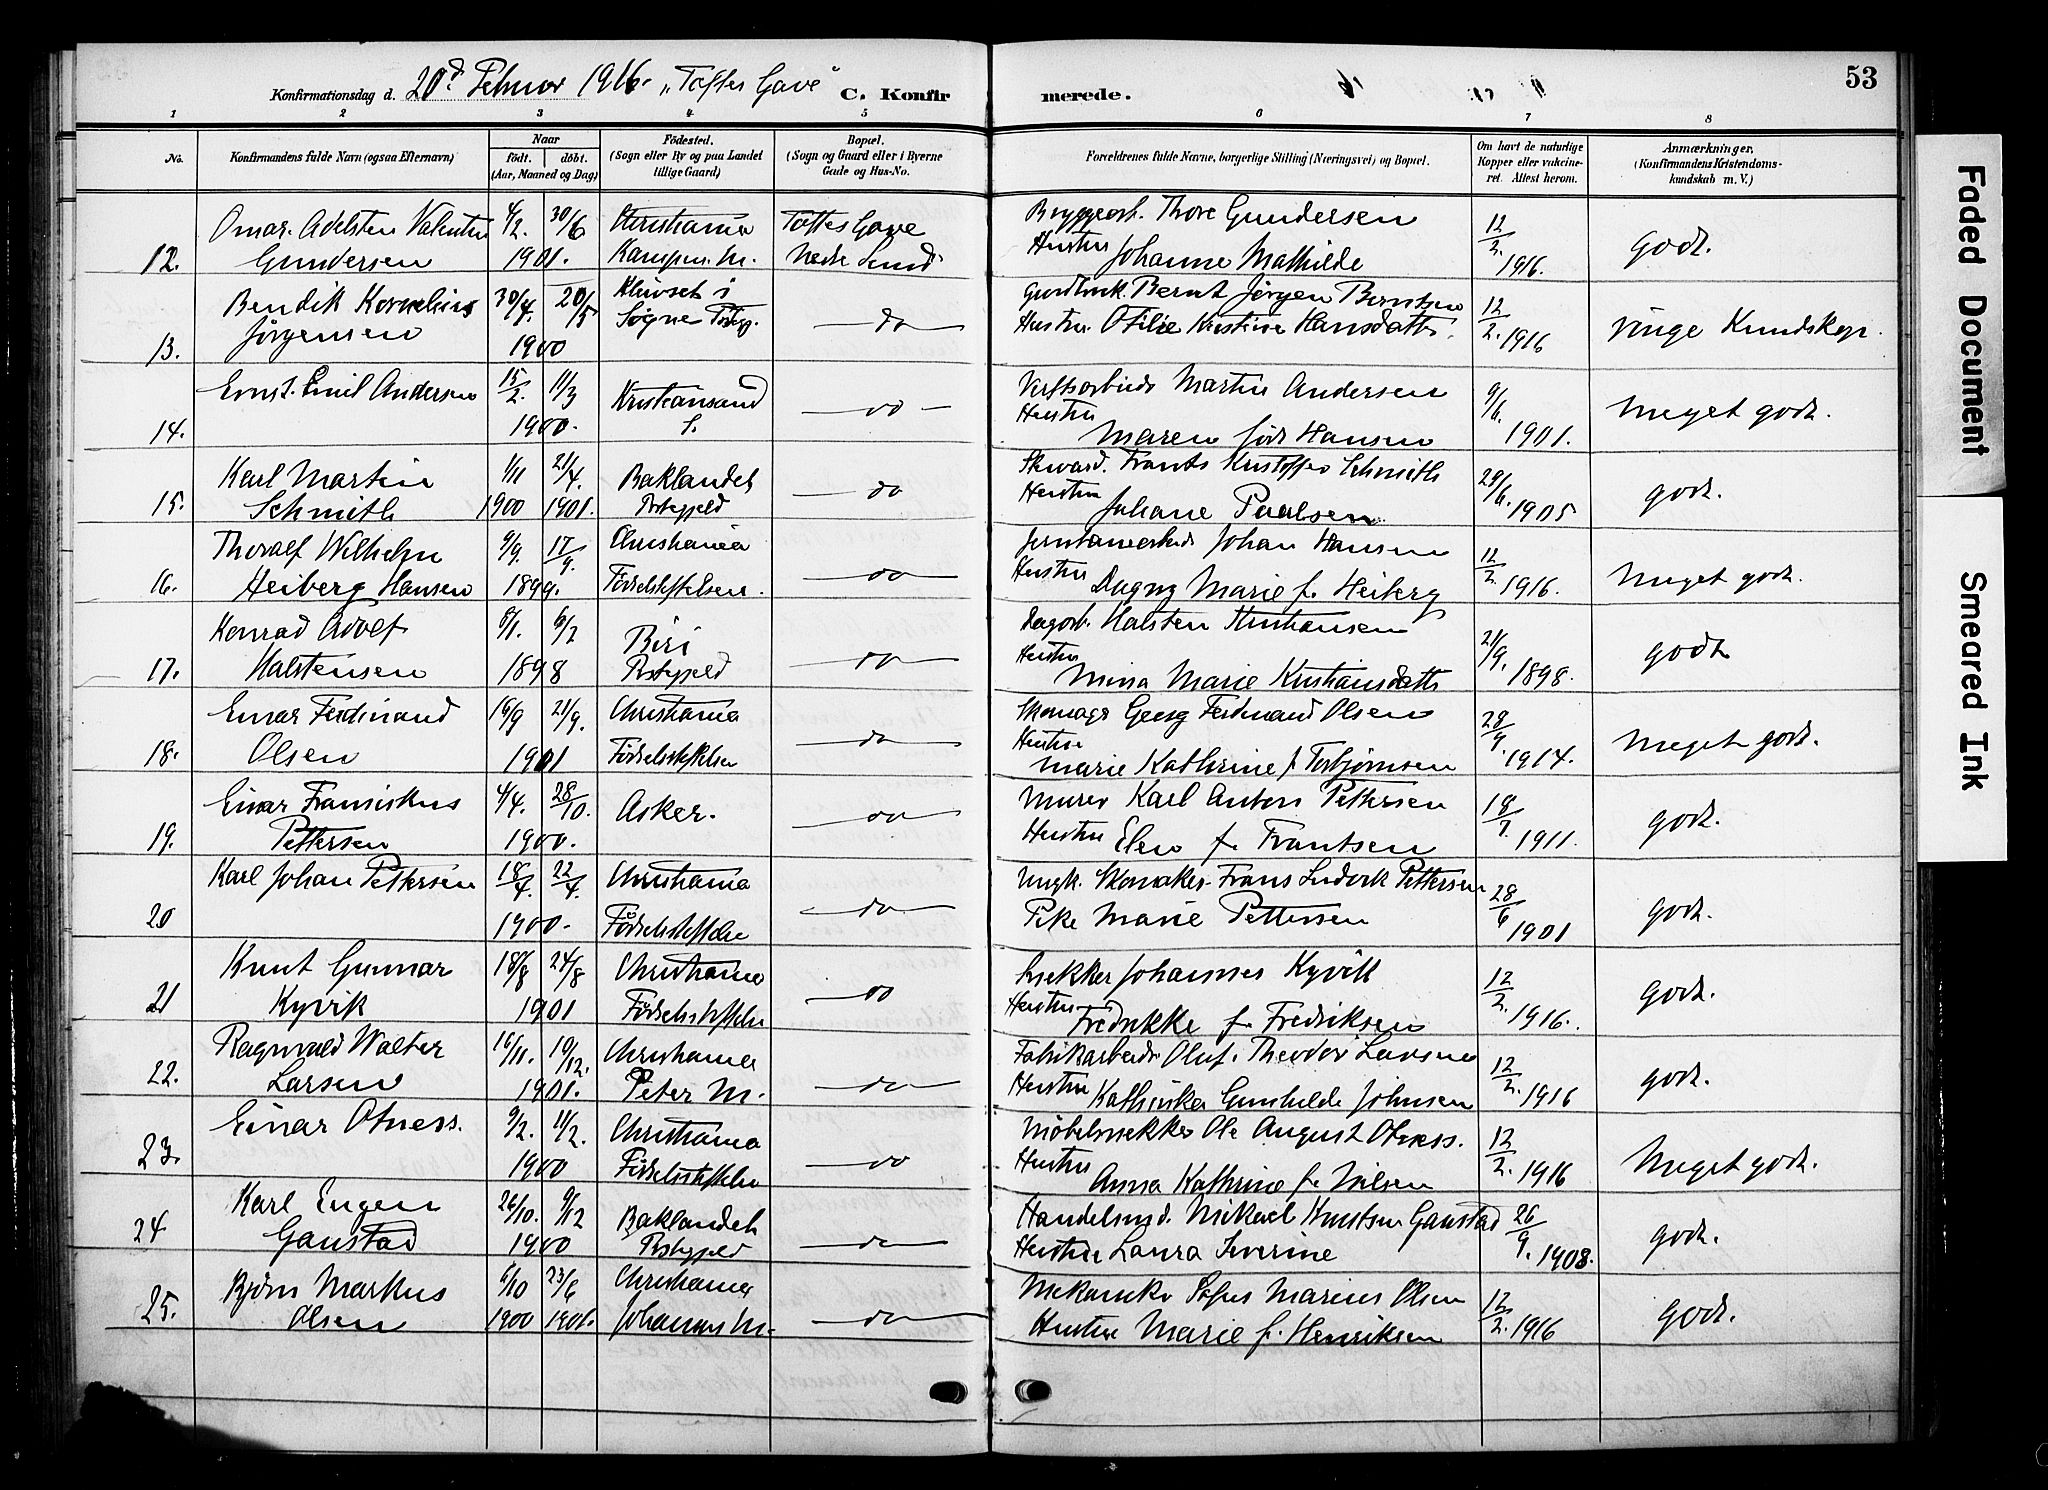 Konfirmationsdag d. 20d Februar 1916. "Toftes Gave" C. Konfirmerede. 53
1 2 3 4 5 6 7 8
No. Konfirmandens fulde Navn (ogsaa Efternavn) Naar født. døbt. (Aar, Maaned og Dag) Fødested. (Sogn eller By og paa Landet tillige Gaard) Bopæl. (Sogn og Gaard eller i Byerne Gade og Hus-No. Forældrenes fulde Navne, borgerlige Stilling (Næringsvei) og Bopæl. Om havt de naturlige Kopper eller vakcineret. Attest herom. Anmærkninger. (Konfirmandens Kristendomskundskab m. V.)
Omar Adelsten Valentin 4/2. 30/6 Christiania Toftes Gave Bryggearb. Thore Gundersen 12/2.
12. Gundersen 1901. Kampen M. Nedre Sund Hustru Johanne Mathilde 1916. godt.
Bendik Kornelius 30/4. 20/5 i Gaardbruk. Bernt Jørgen Berntsen 12/2.
13. Jørgensen 1900 Søgne Prstgj. do Hustru Otilie Kristine Hansdatter. 1916 ringe Kundskap.
Ernst Emil Andersen 15/2. 11/3 Kristiansand Verftsarbeider Martin Andersen 9/6.
14. 1900. S. do Hustru Maren født Hansen 1901. Meget godt.
Karl Martin 1/11 21/4. Baklandet Steward. Frants Kristoffer Schmith 29/6.
15. Schmith 1900 1901. Prstegjeld do Hustru Juhane Paalsen. 1905 godt.
Thoralf Wilhelm 9/9. 17/9. Christiania Jerntøiearbeid Johan Hansen 12/2.
16. Heiberg Hansen 1899. Fødselsstiftelsen. do Hustru Dagny Marie f. Heiberg 1916. Meget godt.
Konrad Adolf 8/1. 6/2 Biri Dagarb. Halsten Kristiansen 21/9.
17. Halstensen 1898 Prstegjeld do Hustru Mina Marie Kristiansdatter 1898. godt
Einar Ferdinand 16/9 21/9. Christiania Skomager Georg Ferdinand Olsen 28/9.
18. Olsen 1901 Fødselsstiftelsen do Hustru Marie Kathrine f Torbjørnsen 1914. Meget godt.
Einar Fransiskus 4/4. 28/10. Asker. Murer Karl Anton Pettersen 18/7.
19. Pettersen 1900. do Hustru Elen f. Frantsen 1911. godt.
Karl Johan Pettersen 18/4. 22/4. Christiania Ungk. Skomaker Frans Ludvik Pettersen 28/6
20 1900. Fødselsstiftelse do Pike Marie Pettersen 1901 godt.
Knut Gunnar 18/8 24/8 Christiania Snekker Johannes Kyvik 12/2.
21 Kyvik 1901 Fødselsstiftelse do Hustru Fredrikke f. Fredriksen 1916. godt.
Ragnvald Walter 16/11. 19/12. Christiania Fabrikarbeider Oluf Theodor Larsen 12/2.
22. Larsen 1901. Peter M. do Hustru Kathinka Gunhilde Johnsen 1916 godt.
Einar Otness. 9/2. 11/2. Christiania Møbelsnekker Ole August Otness. 12/2.
23. 1900 Fødselsstiftelse do Hustru Anna Kathrine f. Nilsen 1916 Meget godt.
Karl Eugen 26/10. 9/12 Baklandet Handelsmd. Mikael Knutsen Ganstad 26/9.
24 Ganstad 1900 Prstegjeld do Hustru Laura Severine 1908. godt.
Bjørn Markus 6/10 23/6 Christiania Mekaniker Sofus Marius Olsen 12/2.
25. Olsen 1900 1901. Johannes M. do Hustru Marie f. Henriksen 1916 godt.
Faded Document
Smeared Ink